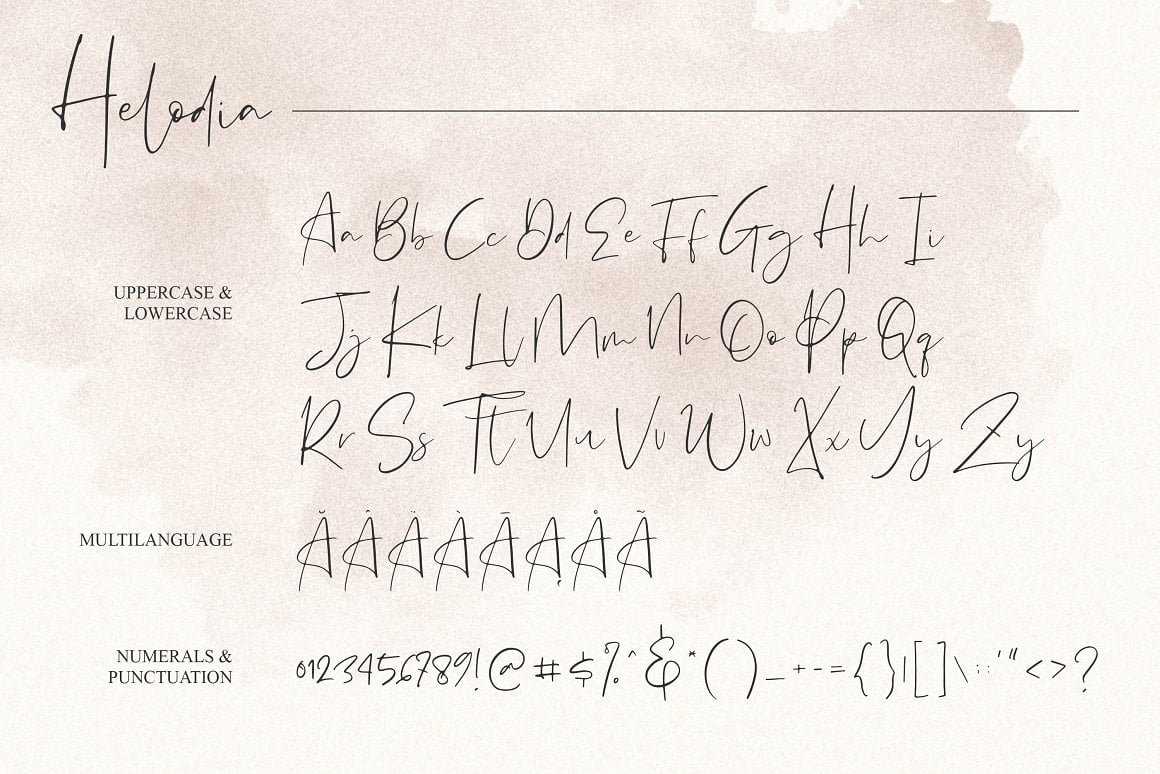 Helodia
Aa Bb Cc Dd Ee Ff Gg Hh Ii
UPPERCASE &
LOWERCASE
Jj Kk Ll Mm Nn Oo Pp Qq
Rr Ss Tt Uu Vv Ww Xx Yy Zy
MULTILANGUAGE
Ă Â Ä À Ā Ą Å Ã
NUMERALS &
PUNCTUATION
0123456789!@#$%^&*()_+-={}|[]\:;'"<>?